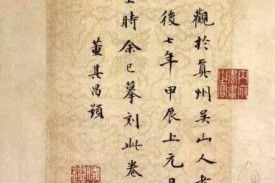 觀於真州吳山人孝
後七年甲辰上元日
時余已摹刻此卷
董其昌題